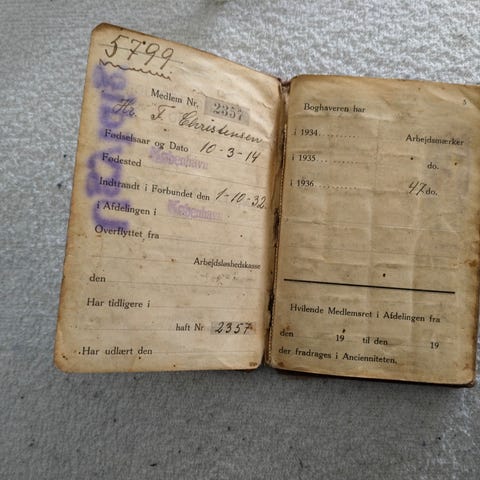 5799
Medlem Nr. 2357
Hr. F. Christensen
Fødselsaar og Dato 10-3-14
Fødested København
Indtraadt i Forbundet den 1-10-32
i Afdelingen i København
Overflyttet fra
Arbejdsløshedskasse
den
Har tidligere i
haft Nr 2357
Har udlært den
5
Boghaveren har
i 1934 ........ Arbejdsmærker
i 1935 ........ do.
i 1936 ........ 47 do.
Hvilende Medlemsret i Afdelingen fra
den 19 til den 19
der fradrages i Ancienniteten.